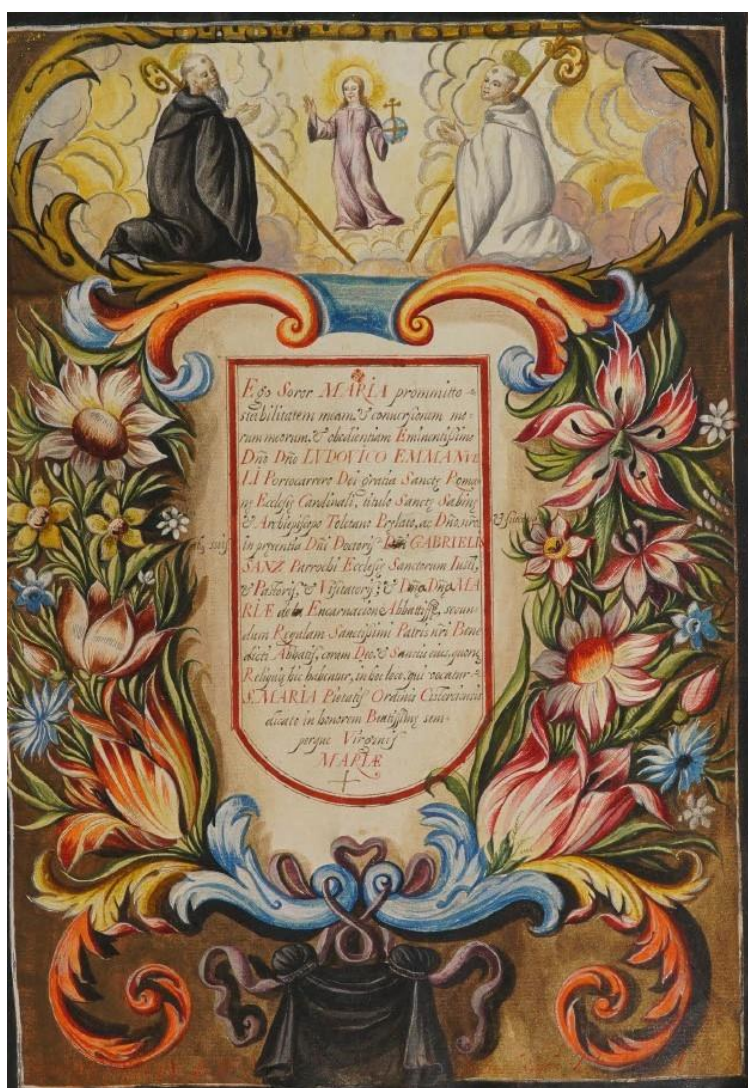 Ego Soror MARIA prommitto
stabilitatem meam, & conuersionem mo-
rum meorum, & obedientiam Eminentissimo
Dño Dño LVDOVICO EMMANVE
LI Portocarrero Dei gratia Sanctę Roma
nę Ecclesię Cardinali, titulo Sanctę Sabinę
& Archiepiscopo Toletano Prelato, ac Dño, nrõ
in pręsentia Dñi Doctoris GABRIELIS
SANZ Parrochi Ecclesię Sanctorum Iusti,
& Pastoris, & Visitatoris; & Dñę Dñę MA
RIÆ de la Encarnacion Abbatissę, secun-
dum Regulam Sanctissimi Patris nri Bene
dicti Abbatis, coram Deo, & Sanctis eius, quorũ
Reliquię hic habentur, in hoc loco, qui vocatur
S. MARIA Pietatis Ordinis Cisterciensis
dicato in honorem Beatissimę sem-
perque Virginis
MARIÆ